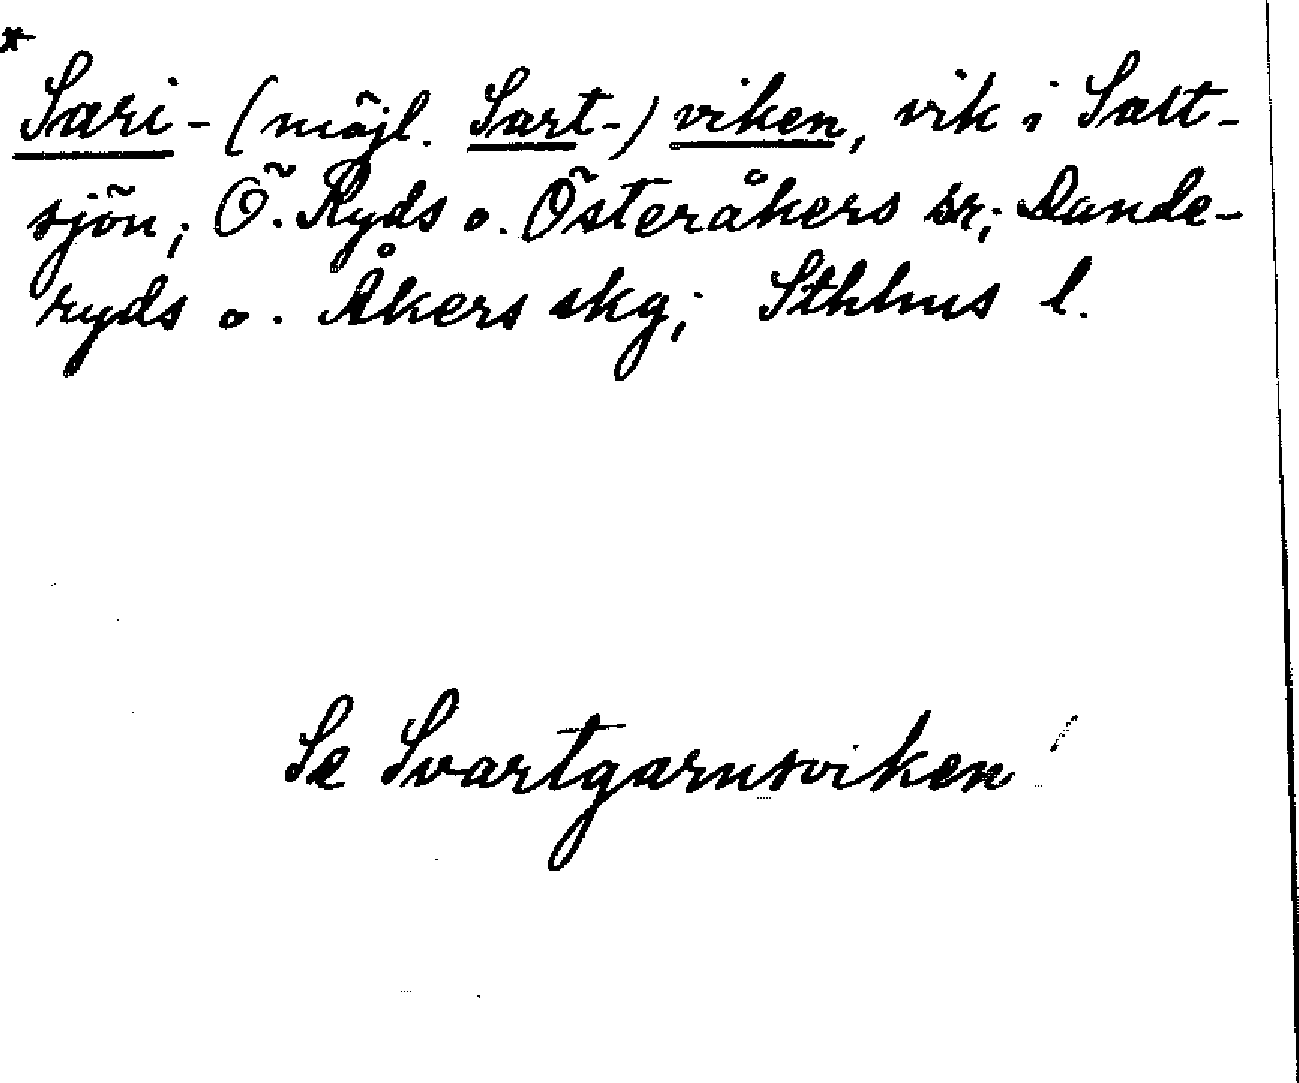 * Sari- (möjl. Sart-) viken, vik i Salt-
sjön; Ö. Ryds o. Österåkers sr; Dande-
ryds o. Åkers skg; Sthlms l.
Se Svartgarnsviken!